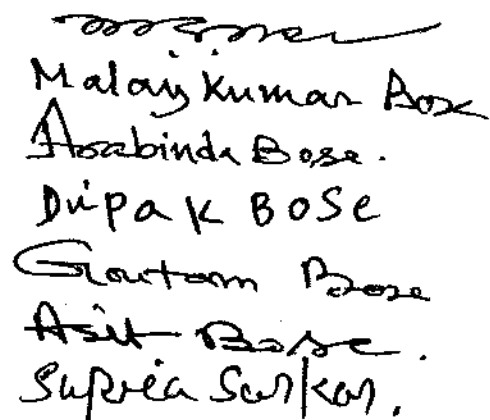 Malay Kumar Bose
Arabinda Bose.
Dipak Bose
Goutam Bose
Asit Bose.
Supria Sarkar.